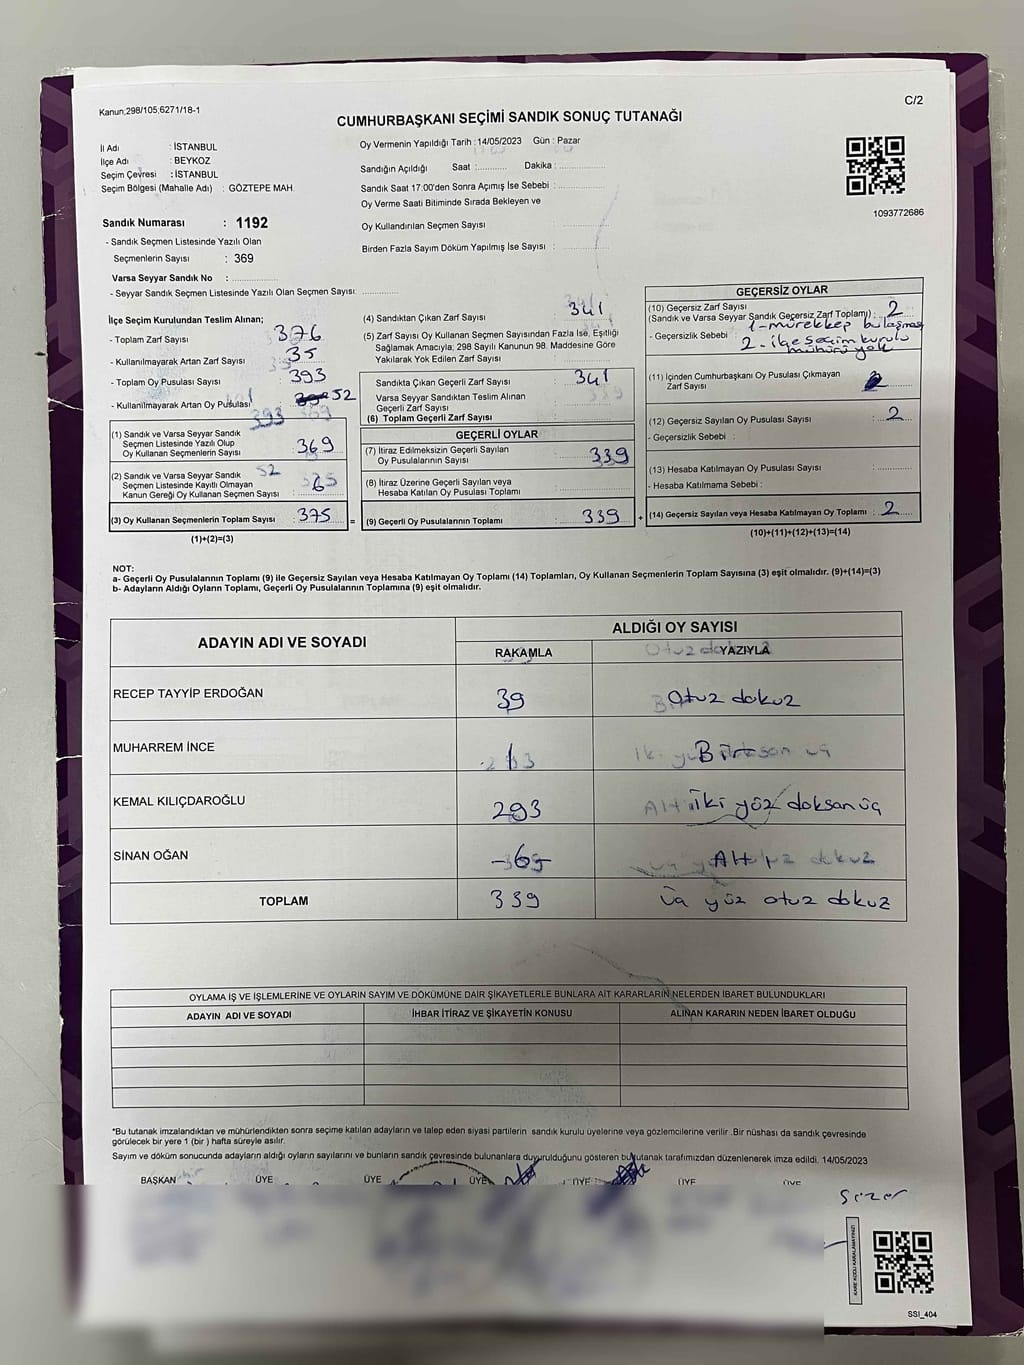 Kanun,298/105,6271/18-1
C/2
CUMHURBAŞKANI SEÇİMİ SANDIK SONUÇ TUTANAĞI
İl Adı : İSTANBUL
İlçe Adı : BEYKOZ
Seçim Çevresi : İSTANBUL
Seçim Bölgesi (Mahalle Adı) : GÖZTEPE MAH.
Oy Vermenin Yapıldığı Tarih : 14/05/2023 Gün : Pazar
Sandığın Açıldığı Saat :.......... Dakika :..............
Sandık Saat 17:00'den Sonra Açımış İse Sebebi :..............
Oy Verme Saati Bitiminde Sırada Bekleyen ve
Oy Kullandırılan Seçmen Sayısı
Birden Fazla Sayım Döküm Yapılmış İse Sayısı :
1093772686
Sandık Numarası : 1192
- Sandık Seçmen Listesinde Yazılı Olan
Seçmenlerin Sayısı : 369
Varsa Seyyar Sandık No :
- Seyyar Sandık Seçmen Listesinde Yazılı Olan Seçmen Sayısı:
İlçe Seçim Kurulundan Teslim Alınan;
- Toplam Zarf Sayısı 376
- Kullanılmayarak Artan Zarf Sayısı 35
- Toplam Oy Pusulası Sayısı 393
- Kullanılmayarak Artan Oy Pusulası 52
(1) Sandık ve Varsa Seyyar Sandık
Seçmen Listesinde Yazılı Olup
Oy Kullanan Seçmenlerin Sayısı : 369
(2) Sandık ve Varsa Seyyar Sandık
Seçmen Listesinde Kayıtlı Olmayan
Kanun Gereği Oy Kullanan Seçmen Sayısı
(3) Oy Kullanan Seçmenlerin Toplam Sayısı : 375 =
(1)+(2)=(3)
(4) Sandıktan Çıkan Zarf Sayısı 341
(5) Zarf Sayısı Oy Kullanan Seçmen Sayısından Fazla İse, Eşitliği
Sağlamak Amacıyla, 298 Sayılı Kanunun 98. Maddesine Göre
Yakılarak Yok Edilen Zarf Sayısı
Sandıkta Çıkan Geçerli Zarf Sayısı : 341
Varsa Seyyar Sandıktan Teslim Alınan
Geçerli Zarf Sayısı
(6) Toplam Geçerli Zarf Sayısı
GEÇERLİ OYLAR
(7) İtiraz Edilmeksizin Geçerli Sayılan
Oy Pusulalarının Sayısı : 339
(8) İtiraz Üzerine Geçerli Sayılan veya
Hesaba Katılan Oy Pusulası Toplamı
(9) Geçerli Oy Pusulalarının Toplamı : 339 +
GEÇERSİZ OYLAR
(10) Geçersiz Zarf Sayısı
(Sandık ve Varsa Seyyar Sandık Geçersiz Zarf Toplamı) : 2
- Geçersizlik Sebebi : 1-mürekkep bulaşması
2-ilçe seçim kurulu
mührü yok
(11) İçinden Cumhurbaşkanı Oy Pusulası Çıkmayan
Zarf Sayısı
(12) Geçersiz Sayılan Oy Pusulası Sayısı : 2
- Geçersizlik Sebebi :
(13) Hesaba Katılmayan Oy Pusulası Sayısı
- Hesaba Katılmama Sebebi :
(14) Geçersiz Sayılan veya Hesaba Katılmayan Oy Toplamı : 2
(10)+(11)+(12)+(13)=(14)
NOT:
a- Geçerli Oy Pusulalarının Toplamı (9) ile Geçersiz Sayılan veya Hesaba Katılmayan Oy Toplamı (14) Toplamları, Oy Kullanan Seçmenlerin Toplam Sayısına (3) eşit olmalıdır. (9)+(14)=(3)
b- Adayların Aldığı Oyların Toplamı, Geçerli Oy Pusulalarının Toplamına (9) eşit olmalıdır.
ADAYIN ADI VE SOYADI
ALDIĞI OY SAYISI
RAKAMLA YAZIYLA
RECEP TAYYİP ERDOĞAN 39 Otuz dokuz
MUHARREM İNCE 1 Bir
KEMAL KILIÇDAROĞLU 293 iki yüz doksan üç
SİNAN OĞAN -6- Altı
TOPLAM 339 üç yüz otuz dokuz
OYLAMA İŞ VE İŞLEMLERİNE VE OYLARIN SAYIM VE DÖKÜMÜNE DAİR ŞİKAYETLERLE BUNLARA AİT KARARLARIN NELERDEN İBARET BULUNDUKLARI
ADAYIN ADI VE SOYADI İHBAR İTİRAZ VE ŞİKAYETİN KONUSU ALINAN KARARIN NEDEN İBARET OLDUĞU
*Bu tutanak imzalandıktan ve mühürlendikten sonra seçime katılan adayların ve talep eden siyasi partilerin sandık kurulu üyelerine veya gözlemcilerine verilir .Bir nüshası da sandık çevresinde
görülecek bir yere 1 (bir ) hafta süreyle asılır.
Sayım ve döküm sonucunda adayların aldığı oyların sayılarını ve bunların sandık çevresinde bulunanlara duyurulduğunu gösteren bu tutanak tarafımızdan düzenlenerek imza edildi. 14/05/2023
BAŞKAN ÜYE ÜYE ÜYE ÜYE ÜYE ÜYE
Sezer
KARE KODU KARALAMAYINIZ!
SSI_404